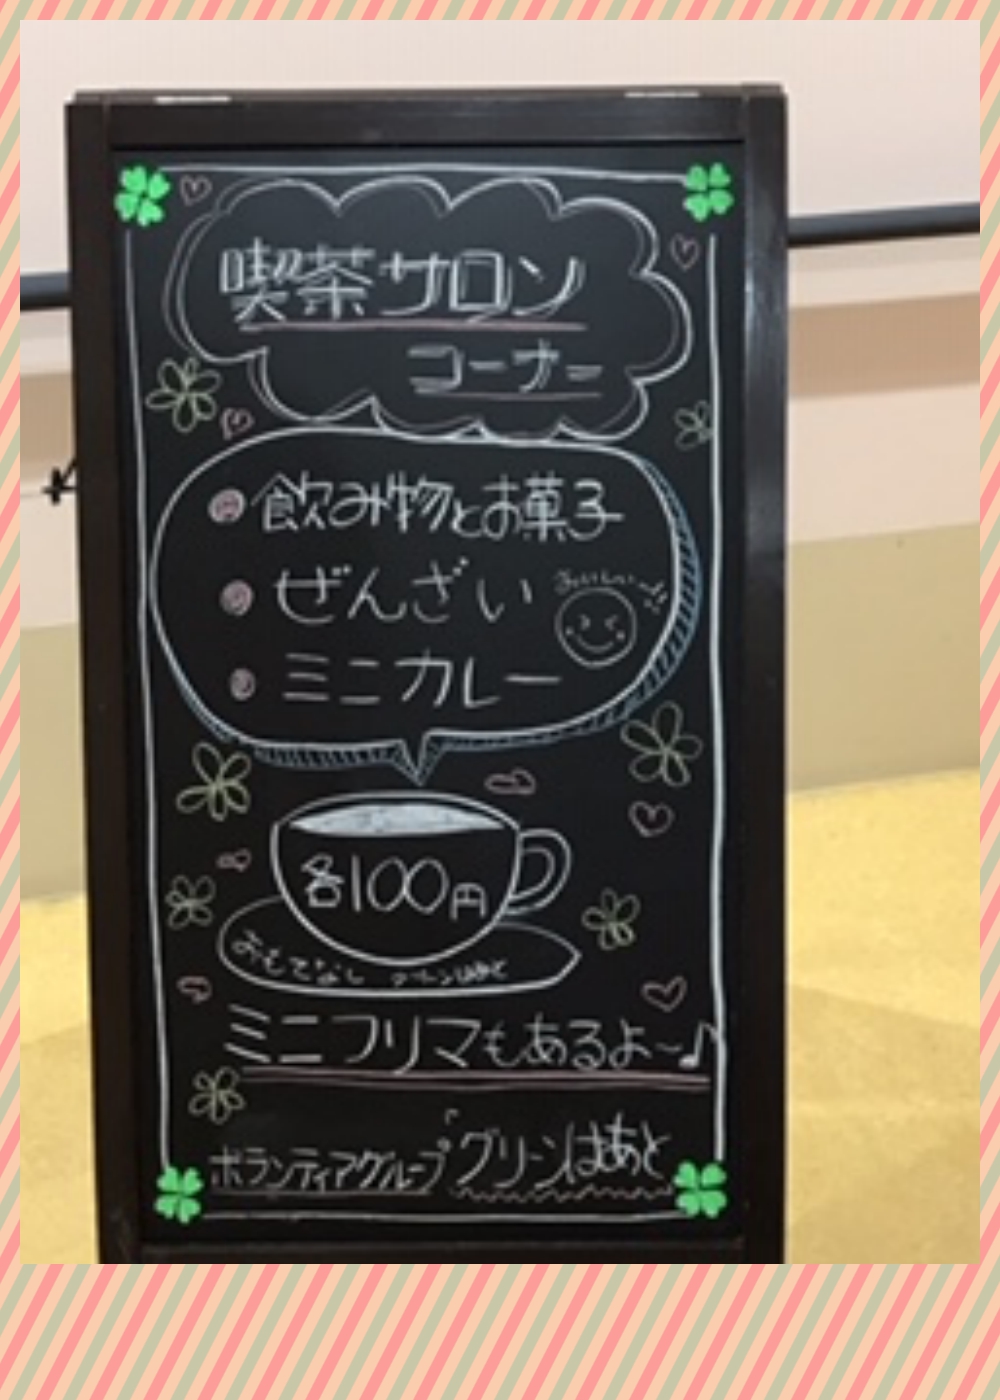 喫茶サロン
コーナー
飲み物とお菓子
ぜんざい
おいしい
ミニカレー
各100円
おもてなし グリーンはあと
ミニフリマもあるよ～♪
ボランティアグループ「グリーンはあと